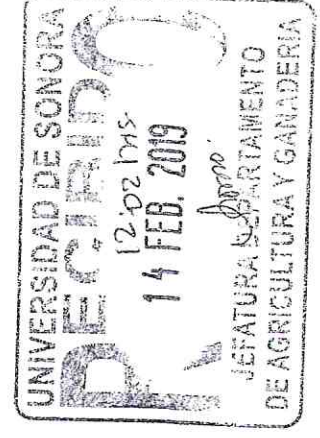 UNIVERSIDAD DE SONORA
RECIBIDO
12:02 hrs
14 FEB. 2019
JEFATURA DEPARTAMENTO
DE AGRICULTURA Y GANADERIA